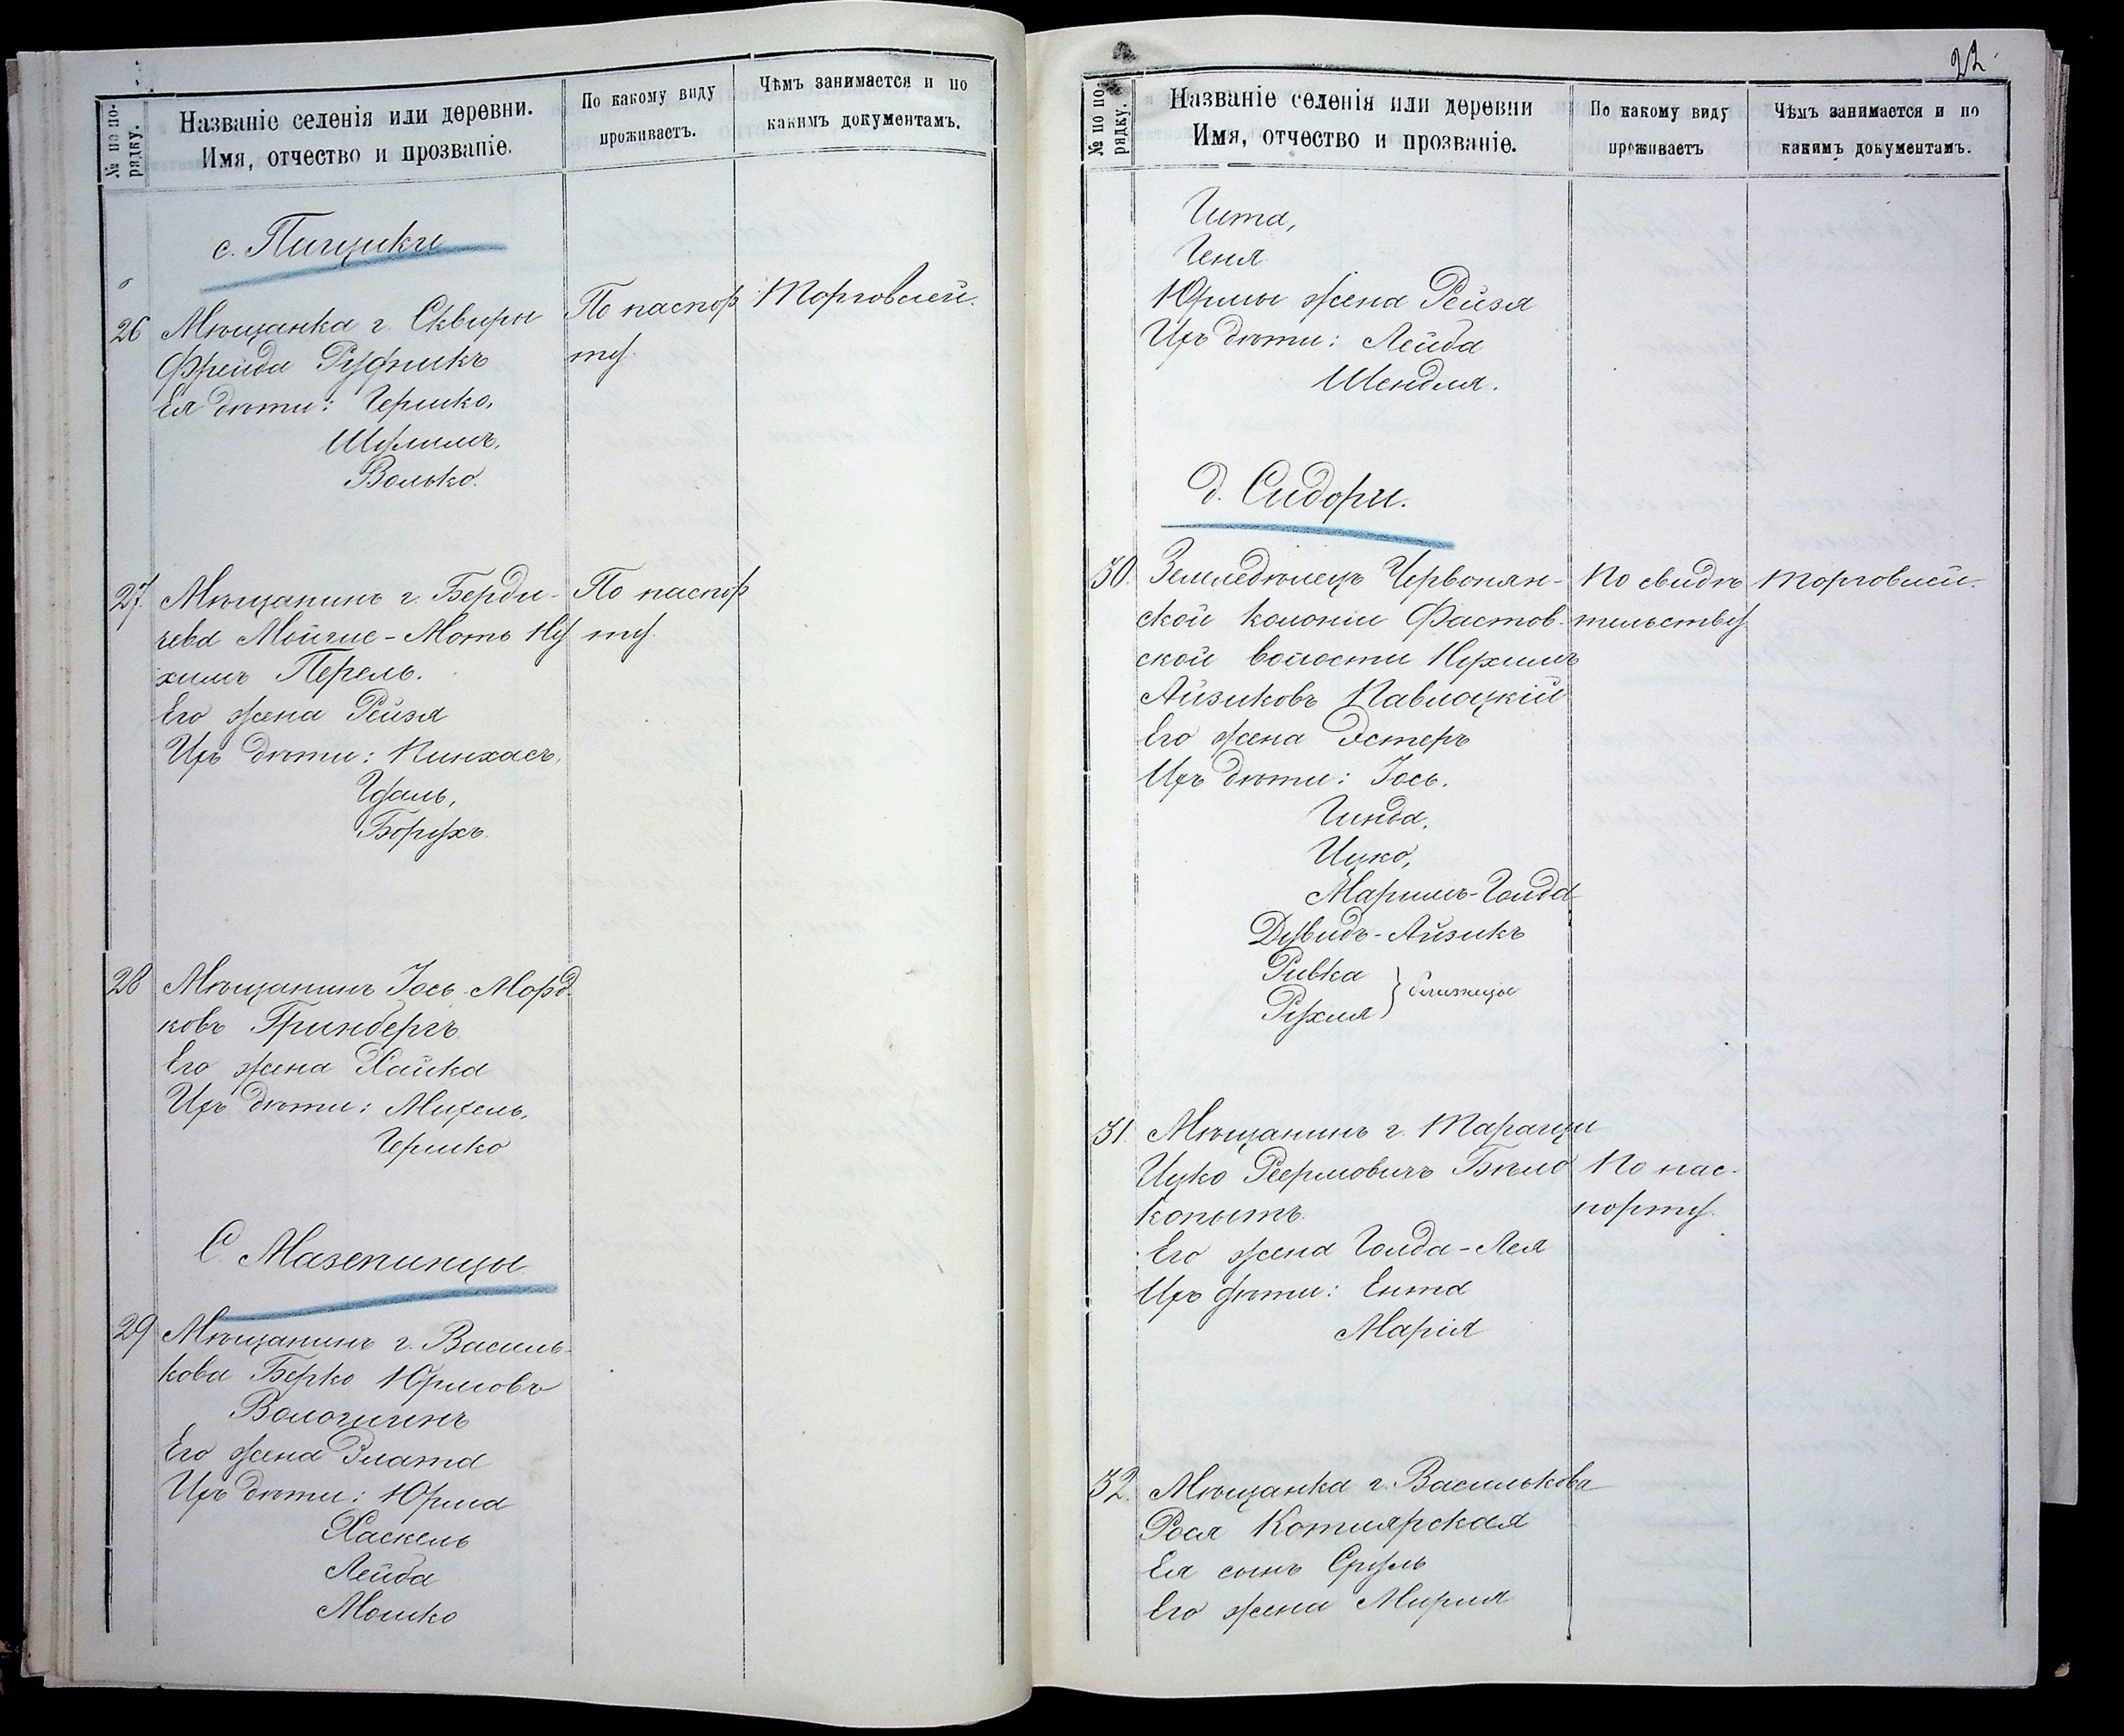 № по по-
рядку.
Названіе селенія или деревни.
Имя, отчество и прозваніе.
По какому виду
проживаетъ.
Чѣмъ занимается и по
какимъ документамъ.
с. Пищики
26 Мѣщанка г. Сквиры По паспор Торговлей.
Фрейда Руфникъ ту.
Ея дѣти: Гершко,
Шулимъ,
Волько.
27. Мѣщанинъ г. Берди- По паспор
чева Мойше-Моть Ну ту.
химъ Перель.
Его жена Рейзя
Ихъ дѣти: Пинхасъ,
Удаль,
Борухъ.
28 Мѣщанинъ Іось Морд-
ковъ Гринбергъ
Его жена Хайка
Ихъ дѣти: Михель,
Гершко
С. Мазепинцы
29 Мѣщанинъ г. Василь-
кова Берко Юрмовъ
Волошинъ
Его жена Злата
Ихъ дѣти: Юрма
Хаскель
Лейба
Мошко
22
№ по по-
рядку.
Названіе селенія или деревни
Имя, отчество и прозваніе.
По какому виду
проживаетъ
Чѣмъ занимается и по
какимъ документамъ.
Гита,
Геня
Юрмы жена Рейзя
Ихъ дѣти: Лейба
Шендля.
д. Сидоры.
30. Земледѣлецъ Червонян- По свидѣ Торговлей.
ской колоніи Фастов- тельству
ской волости Нухимъ
Айзиковъ Павлоцкій
Его жена Эстеръ
Ихъ дѣти: Іось.
Гинда.
Ицко,
Маримъ-Голда
Дувидъ-Айзикъ
Ривка
Рухля } близнецы
31. Мѣщанинъ г. Таращи
Ицко Бѣло По пас-
копытъ. порту.
Его жена Голда-Лея
Ихъ дѣти: Ента
Марія
32. Мѣщанка г. Василькова
Рося Котлярская
Ея сынъ Сруль
Его жена Мирля